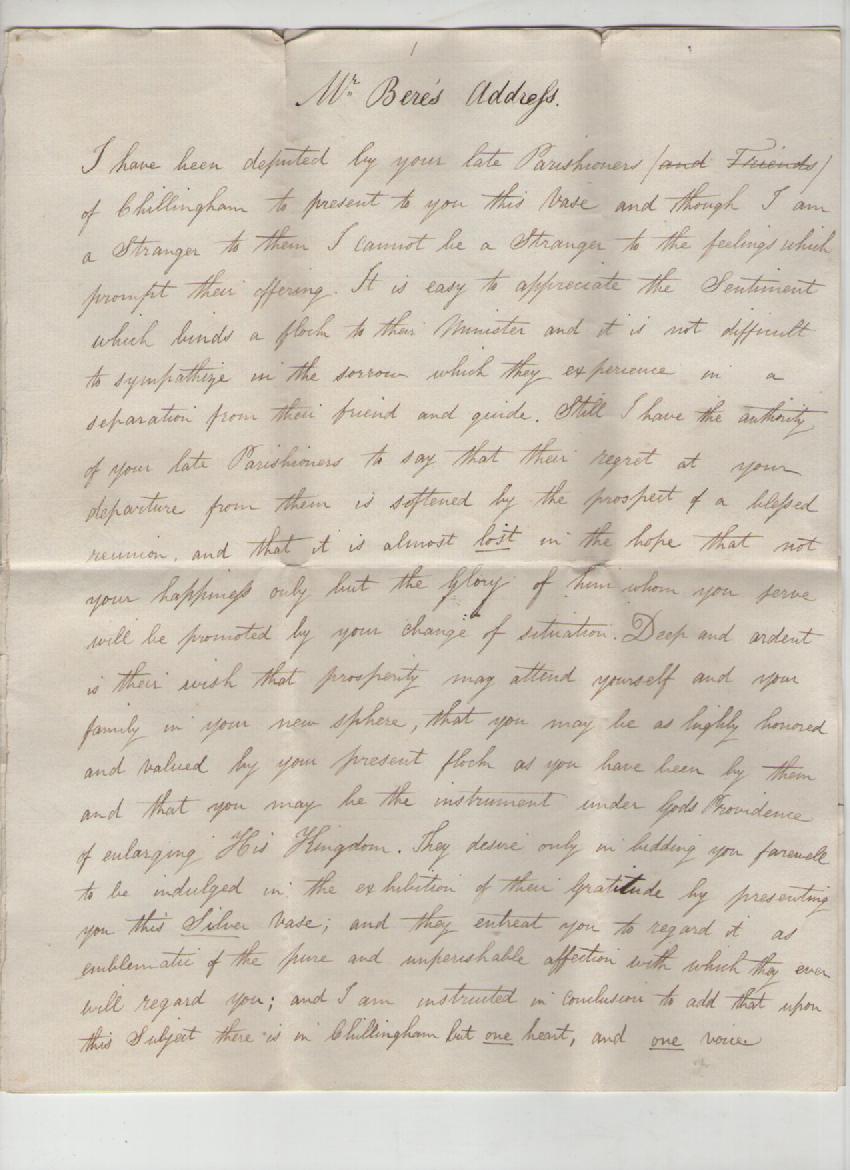 Mr Bere's Address.
I have been deputed by your late Parishioners (and Friends)
of Chillingham to present to you this Vase and though I am
a Stranger to them I cannot be a Stranger to the feelings which
prompt their offering. It is easy to appreciate the Sentiment
which binds a flock to their Minister and it is not difficult
to sympathize in the sorrow which they experience in a
separation from their friend and guide. Still I have the authority
of your late Parishioners to say that their regret at your
departure from them is softened by the prospect of a blessed
reunion, and that it is almost lost in the hope that not
your happiness only but the glory of him whom you serve
will be promoted by your change of situation. Deep and ardent
is their wish that prosperity may attend yourself and your
family in your new sphere, that you may be as highly honored
and valued by your present flock as you have been by them
and that you may be the instrument under Gods Providence
of enlarging His Kingdom. They desire only in bidding you farewell
to be indulged in the exhibition of their Gratitude by presenting
you this Silver Vase; and they entreat you to regard it as
emblematic of the pure and unperishable affection with which they ever
will regard you; and I am instructed in conclusion to add that upon
this Subject there is in Chillingham but one heart, and one voice